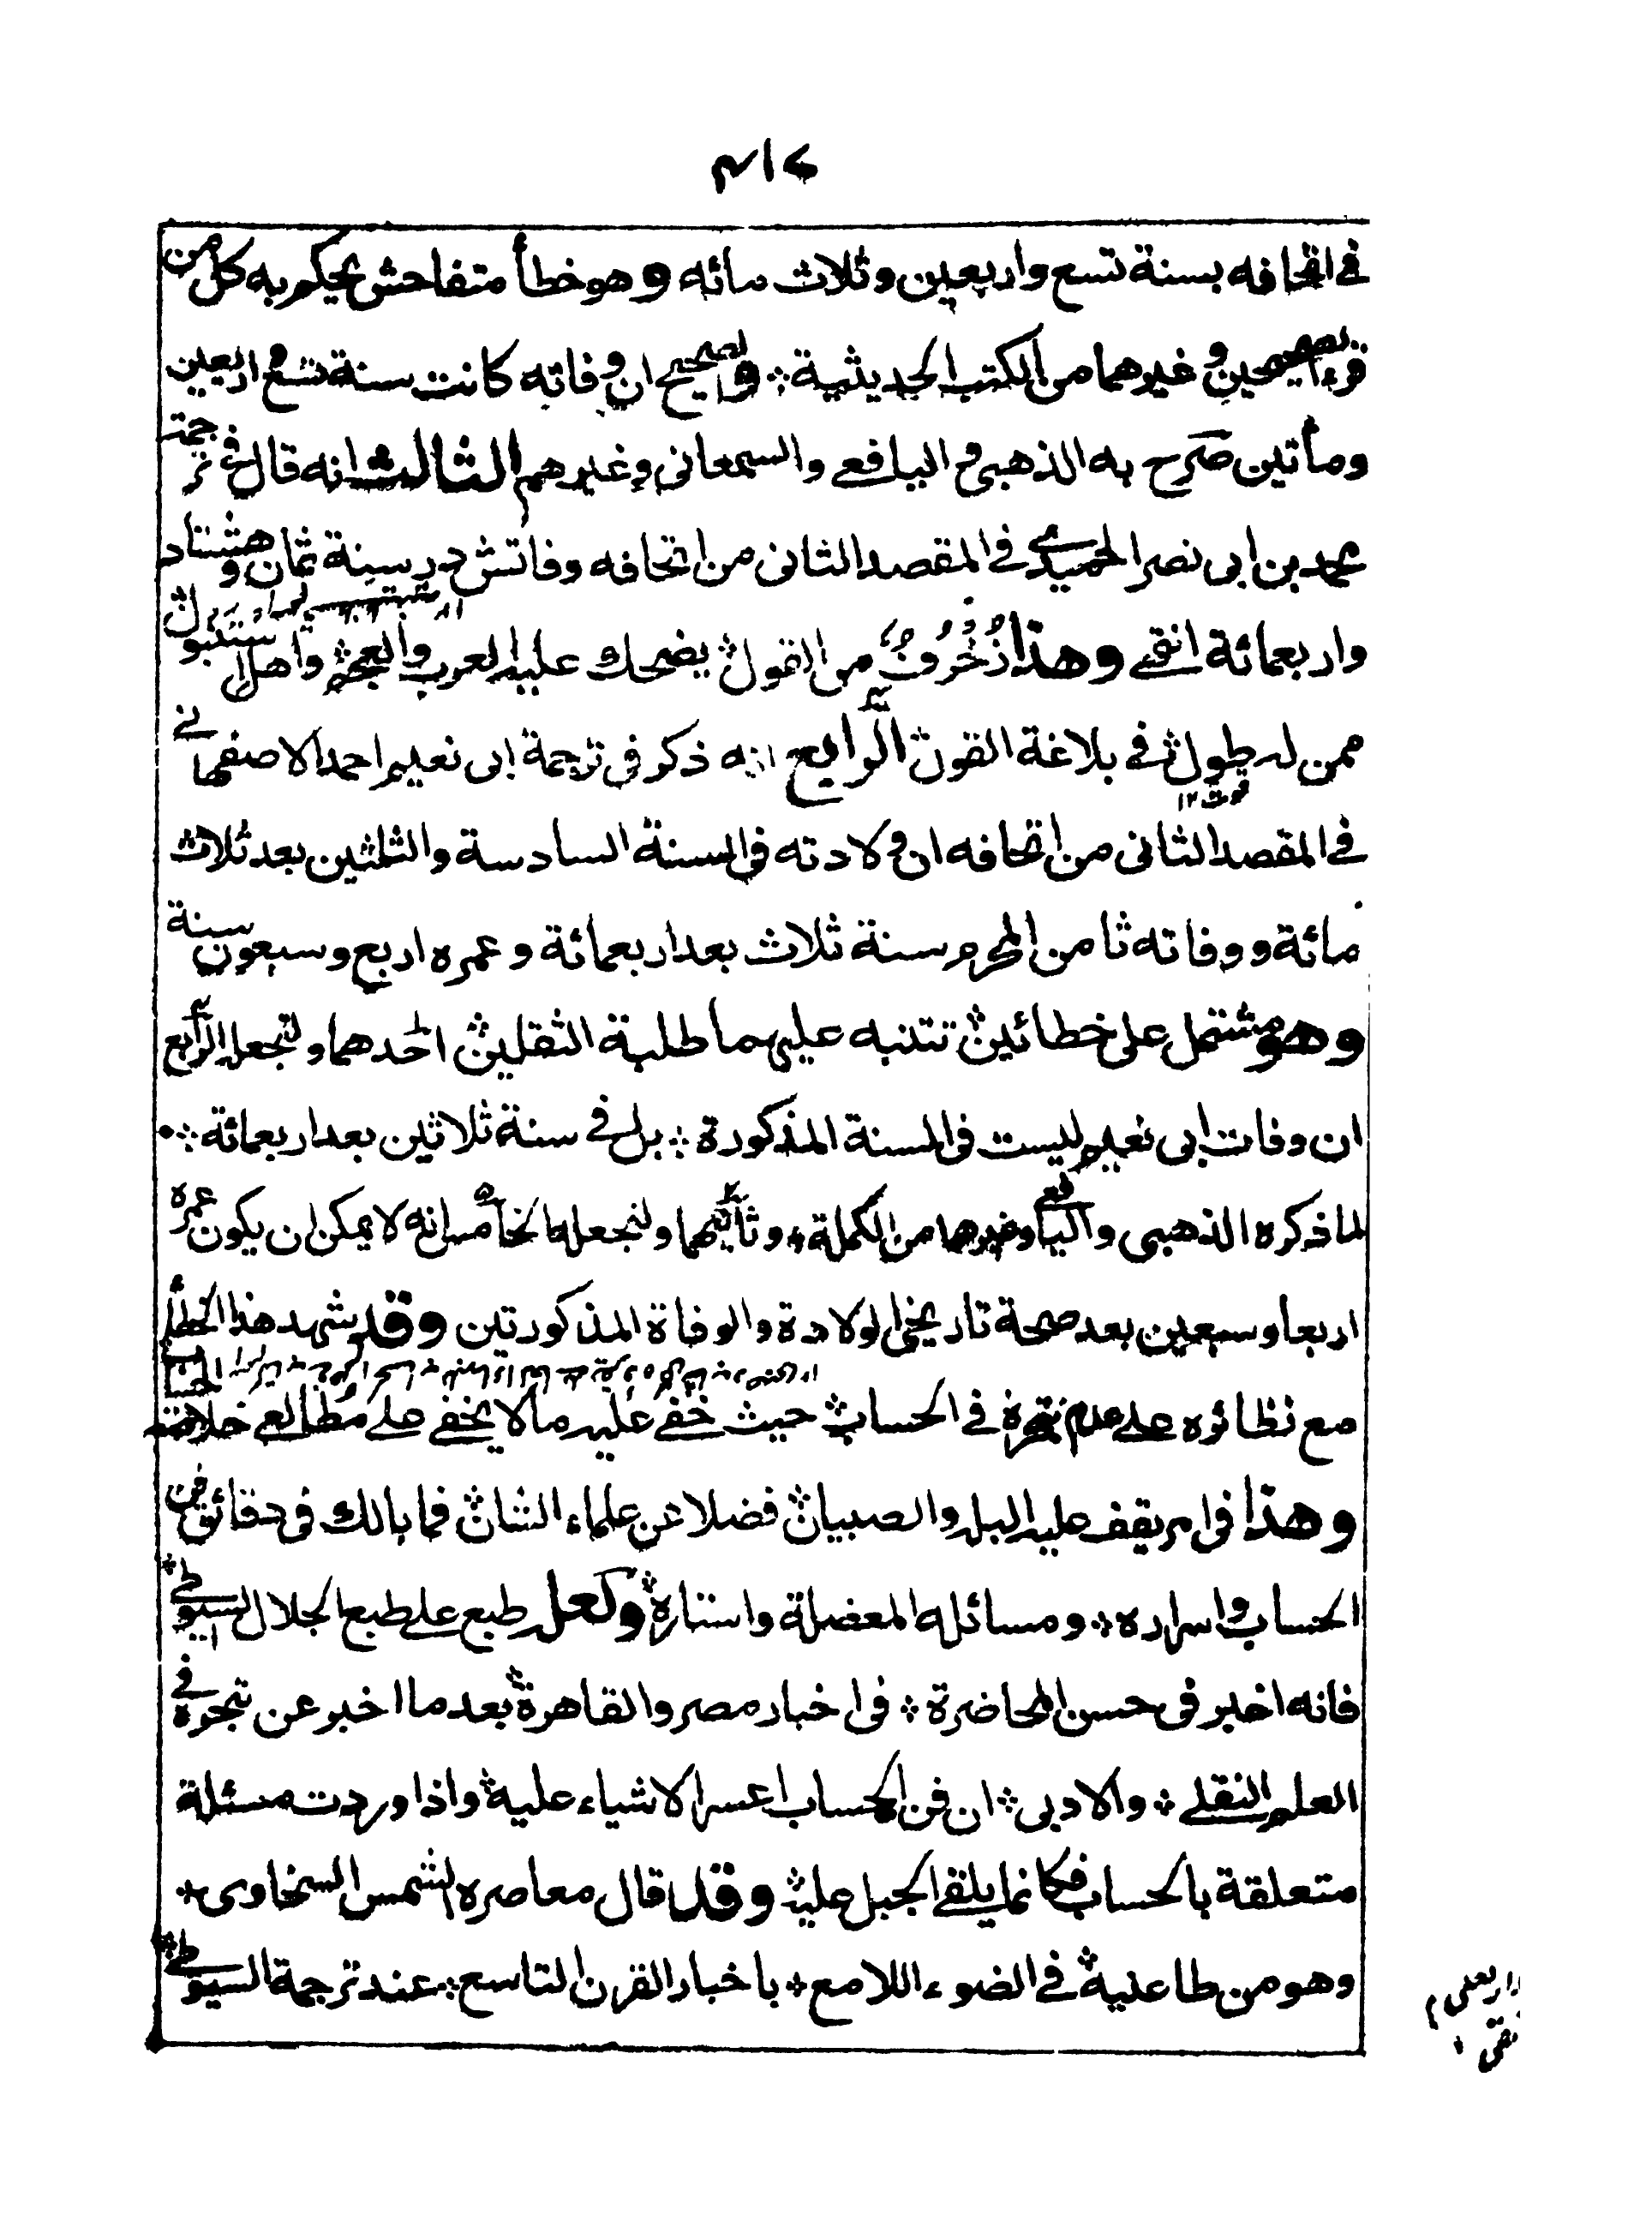 ٤١٧
في اتحافه بسنة تسع واربعين وثلاث مائه وهو خطأ متفاحش يحكم به كل من
قرء الصحيحين وغيرهما من الكتب الحديثية ؞ والصحيح ان وفاته كانت سنة تسع اربعين
ومأتين صرح به الذهبي واليافعي والسمعاني وغيرهم الثالث انه قال في ترجمة
محمد بن ابي نصر الحميدي في المقصد الثاني من اتحافه وفاتش در سنة ثمان وهشتاد
واربعمائة انتهى وهذا زُخْرُفٌ من القول ؞ يضحك عليه العرب والعجم ؞ واهل استنبول
ممن له طول في بلاغة القول ؞ الرابع انه ذكر في ترجمة ابي نعيم احمد الاصفهاني
في المقصد الثاني من اتحافه ان ولادته في السنة السادسة والثلثين بعد ثلاث
مائة ووفاته ثامن المحرم سنة ثلاث بعد اربعمائة وعمره اربع وسبعون سنة
وهو مشتمل على خطائين ؞ تتنبه عليهما طلبة الثقلين ؞ احدهما ولنجعله الرابع
ان وفات ابي نعيم ليست في السنة المذكورة ؞ بل في سنة ثلاثين بعد اربعمائة ؞
لما ذكره الذهبي واليافعي وغيرهما من الكملة ؞ وثانيهما ولنجعله الخامس انه لا يمكن ان يكون عمره
اربعا وسبعين بعد صحة تاريخي الولادة والوفاة المذكورتين وقد شهد هذا الخطأ
مع نظائره على عدم تبحره في الحساب ؞ حيث خفي عليه ما لا يخفى على مطالعي خلاصة الحساب
وهذا في امر يقف عليه البله والصبيان ؞ فضلا عن علماء الشان ؞ فما بالك في دقائق فن
الحساب واسراره ؞ ومسائله المعضلة واستاره ؞ ولعل طبع على طبع الجلال السيوطي ؞
فانه اخبر في حسن المحاضرة ؞ في اخبار مصر والقاهرة ؞ بعد ما اخبر عن تبحره في
العلم النقلي ؞ والادبي ؞ ان فن الحساب اعسر الاشياء عليه ؞ واذا وردت مسئلة
متعلقة بالحساب فكانما يلقى الجبل عليه ؞ وقد قال معاصره الشمس السخاوي ؞
وهو من طاعنيه ؞ في الضوء اللامع ؞ باخبار القرن التاسع ؞ عند ترجمة السيوطي ؞